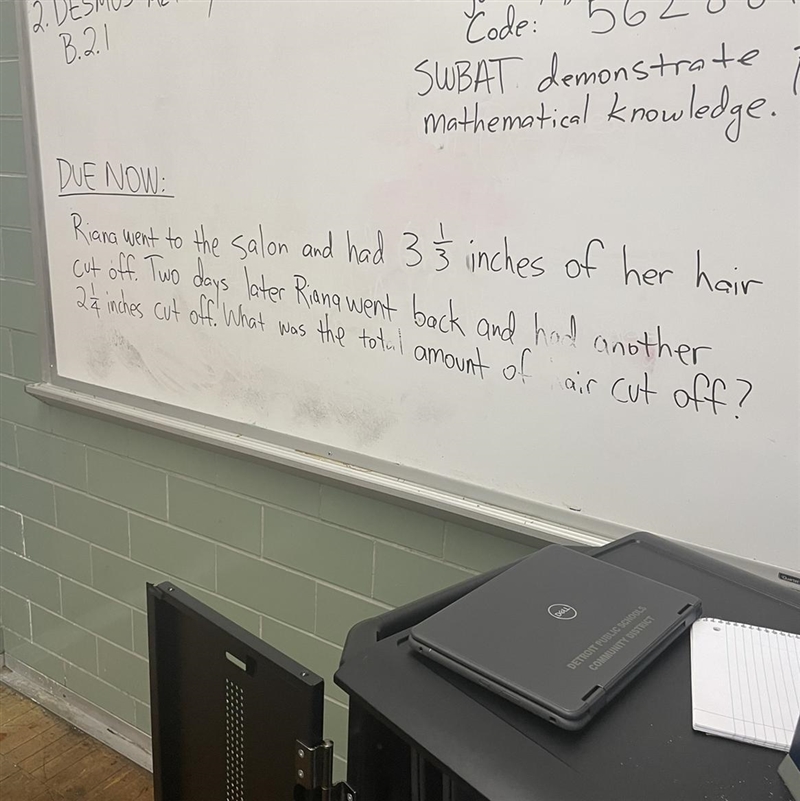 2. DESMOS
B.2.1
Code: 5628
SWBAT demonstrate
mathematical knowledge.
DUE NOW:
Riana went to the salon and had 3 1/3 inches of her hair
cut off. Two days later Riana went back and had another
2 1/4 inches cut off! What was the total amount of air cut off?
DELL
DETROIT PUBLIC SCHOOLS
COMMUNITY DISTRICT